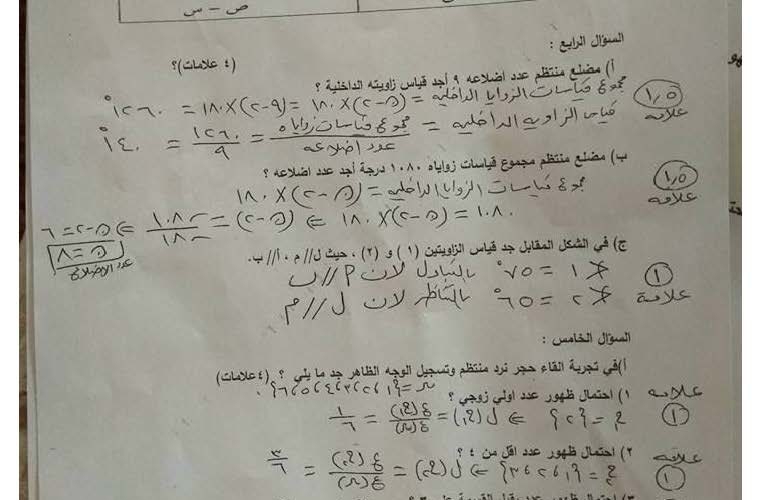 ص - س
السؤال الرابع :
(٤ علامات)؟
أ) مضلع منتظم عدد اضلاعه ٩ أجد قياس زاويته الداخلية ؟
١,٥ علامة
مجموع قياسات الزوايا الداخلية = (ن-٢)×١٨٠ = (٩-٢)×١٨٠ = ١٢٦٠°
قياس الزاوية الداخلية = مجموع قياسات زواياه / عدد اضلاعه = ١٢٦٠ / ٩ = ١٤٠°
ب) مضلع منتظم مجموع قياسات زواياه ١٠٨٠ درجة أجد عدد اضلاعه ؟
١,٥ علامة
مجموع قياسات الزوايا الداخلية = (ن-٢)×١٨٠
١٠٨٠ = (ن-٢)×١٨٠ ⇐ (ن-٢) = ١٠٨٠ / ١٨٠ ⇐ ن-٢ = ٦
ن = ٨
عدد الاضلاع
ج) في الشكل المقابل جد قياس الزاويتين (١) و (٢) ، حيث ل// م ، أ// ب.
١ علامة
١ = ٧٥° بالتبادل لان م // ب
٢ = ٦٥° بالتناظر لان ل // م
السؤال الخامس :
أ) في تجربة القاء حجر نرد منتظم وتسجيل الوجه الظاهر جد ما يلي ؟ (٤علامات)
{١،٢،٣،٤،٥،٦}
١) احتمال ظهور عدد اولي زوجي ؟
علامة ١
ح = {٢} ⇐ ل(ح١) = ع(ح١) / ع(س) = ١ / ٦
٢) احتمال ظهور عدد اقل من ٤ ؟
علامة ١
ح = {١،٢،٣} ⇐ ل(ح٢) = ع(ح٢) / ع(س) = ٣ / ٦